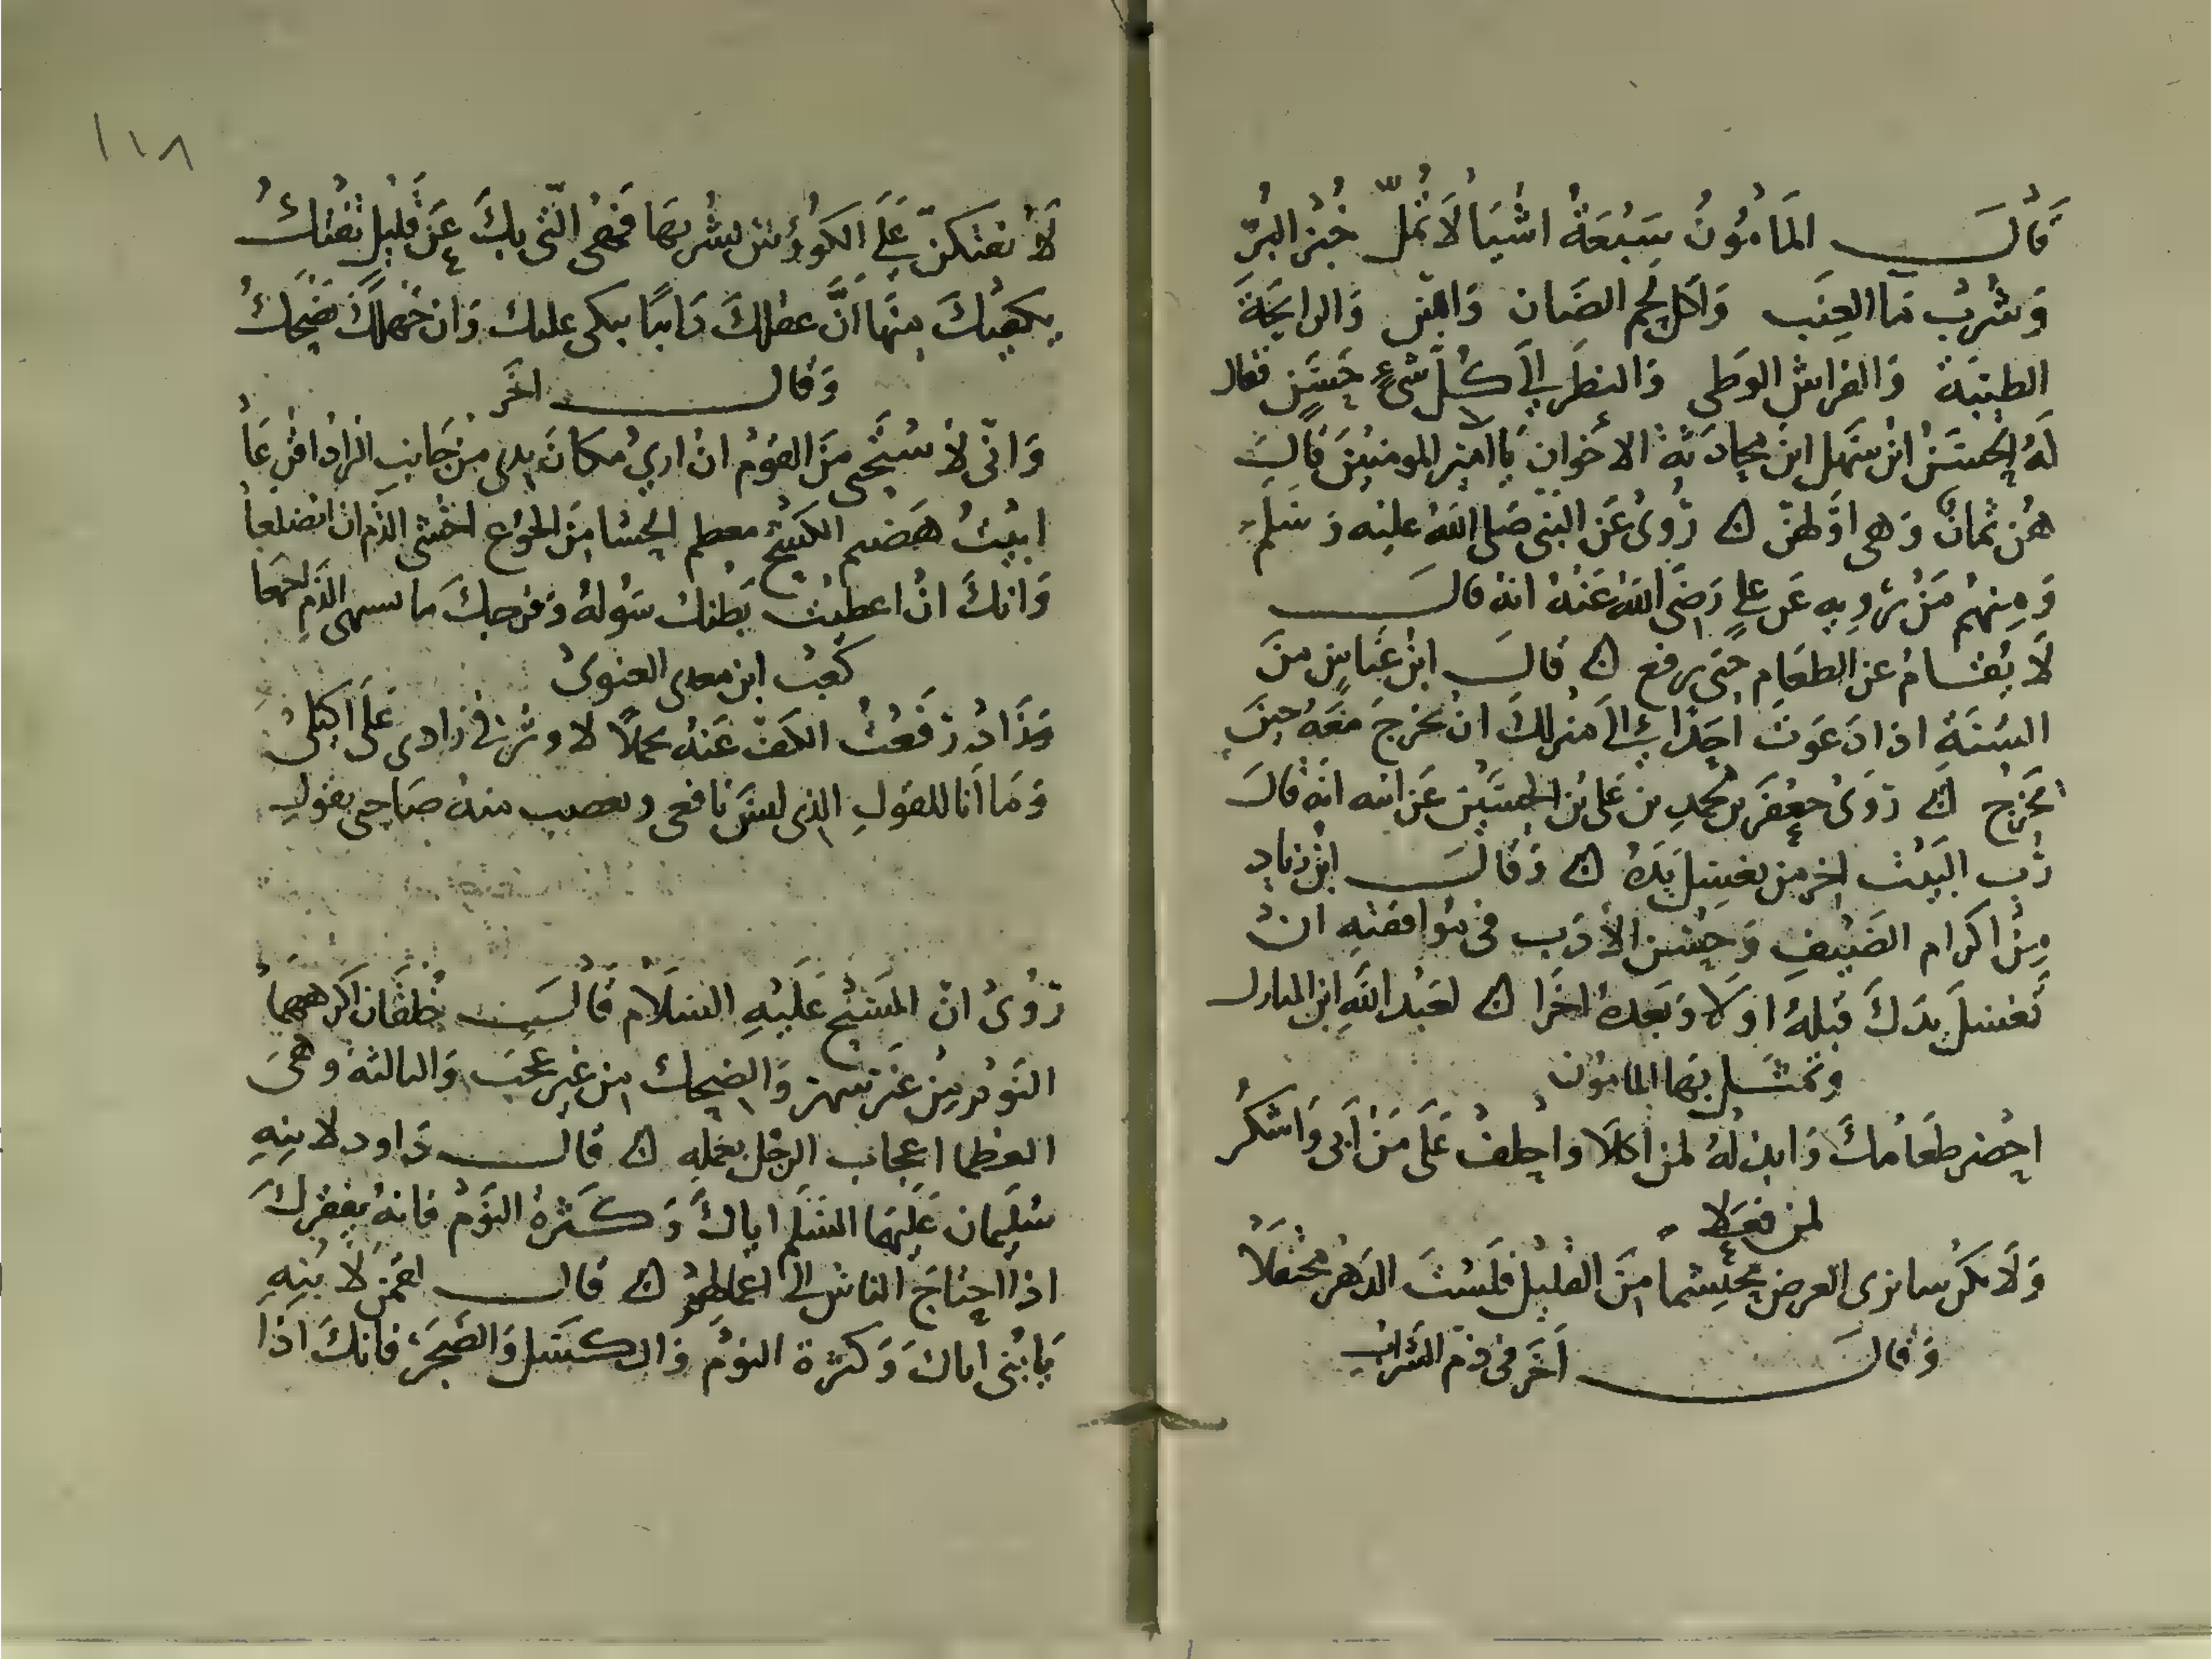 قَالَ المَأمُونُ سَبْعَةُ اشْيَا لَا تُمَلّ خُبْز البُرّ
وَشُرْب مَا العِنَب وَاكل لحم الضان وَالبّن وَالرايحَةَ
الطيبَة وَالفراش الوَطى وَالنظَر إلَى كُلّ شىءٍ حَسَنٍ فقال
لَهُ الحسَنُ ابْن سَهل اين محادَثة الاخوان يَا امير المومنين قَالَ
هُن ثمانٌ وَهى اوَّلهنّ رُوىَ عَن النبى صَلى اللهُ عليْه وَسَلم
وَمِنهُم مَنْ يَروِيهِ عَن علىٍ رَضىَ اللهُ عَنْهُ انهُ قالَ
لَا يُقَام عن الطعَام حتى يرفع قَالَ ابن عَبَّاسٍ منَ
السُنَةِ اذا دَعَوتَ احَدًا إلَى منزلكَ ان تخرجَ مَعَهُ حينَ
يَخرج رَوَىَ جعْفَر بن محمدِ بن عَلى بْن الحسَيْن عَن ابيه انَّه قَالَ
رَب البَيْت اخر من يغسِل يَدَهُ وَقَالَ ابْن زيادٍ
مِنْ اكرام الضَيْفِ وَحُسْن الأدَب فى موافقتهِ انْ
تَغسلَ يدَكَ قبلهُ اوَلا وَبَعدهُ اخرَا لعَبْد اللهِ ابن المبارك
وتمثل بهَا المامُون
احْضر طعَامكَ وَابذلهُ لمن اكلَا واحلفْ عَلَى مَنْ أبى وَاشكُر
لمن فعَلَا
وَلَا تكن سابرى العرض محتشمًا منَ القليْل فلَسْتَ الدَهرَ محتفلَا
وَقالَ آخَر فى ذمّ الشراب
١١٨
لَا تفتكنّ عَلَى الكؤُوس بشُربهَا فَهىَ التّى بكَ عَن قَليْل تَفتكُ
يكفيكَ منهَا أنَّ عقلكَ دَايبًا يبكى عليك وَان جَهلكَ يَضْحَكُ
وَقالَ اخَر
وَانّى لأستَحى منَ القوْم انْ ارىَ مكانَ يدى من جَانب الزاد اقرعَا
ابيْتُ هَضيم الكَشْح مضطم الحشا منَ الجُوْع اخشى الذم ان اتضلعَا
وَانكَ انْ اعطيْتَ بَطنك سُولهُ وَفرجكَ مَا منتهى الذم اجمعَا
كعبْ ابن معدى الغنوىْ
وَزَادٍ رَفَعْتُ الكَفّ عَنْه تجملًا لاوثر فى زادى عَلَى اكيلى
وَمَا أَنا للقولِ الذى ليسَ نافعى ويغضب منهُ صَاحبى بقولِ
رُوىَ انّ المَسيْح عَلَيْهِ السَلَام قَالَ خُلقَان اكرههمَا
النَوْم منْ غَير سَهر وَالضحِك من غير عَجَب وَالثالثة وهىَ
العظما اعجاب الرجُل بعَملهِ قالَ دَاود لابنهِ
سُليمَان عَليهَما السَلم اياكَ وَكَثرَة النَوْم فانهُ يفقركَ
اذا احتاجَ الناس إلَى اعمَالهمْ قالَ لقمن لَابْنِهِ
يَا بُنى اياكَ وَكثرة النوْم وَالكَسَل وَالضَجَر فانكَ اذَا